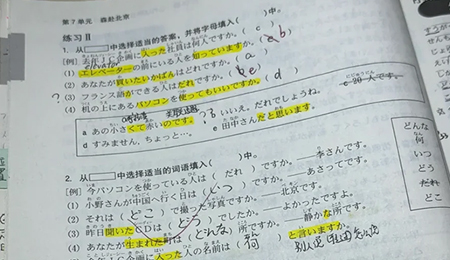 第7单元 奔赴北京
练习Ⅱ
1. 从□中选择适当的答案，并将字母填入（ ）中。
[例] 去年この企画に入った社員は何人ですか。( c )
(1) エレベーターの前にいる人を知っていますか。
(2) あなたが買いたいかばんはどれですか。
(3) フランス語ができる人はだれですか。
(4) 机の上にあるパソコンを使ってもいいですか。( d )
a あの小さくて赤いのです。 いいえ。だれでしょうね。 c 20人です。
d すみません、ちょっと…。 e 田中さんだと思います。
2. 从□中选择适当的词语填入（ ）中。
[例] 今パソコンを使っている人は（ だれ ）ですか。——李さんです。
(1) 小野さんが中国へ行く日は（いつ）ですか。——あさってです。
(2) それは（どこ）で撮った写真ですか。——北京です。
(3) 昨日聞いたCDは（どう）でしたか。——よかったですよ。
(4) あなたが生まれた町は（どんな）所ですか。——静かな所です。
入った人の名前は（何）と言いますか。
どんな
何
いつ
どう
だれ
どこ